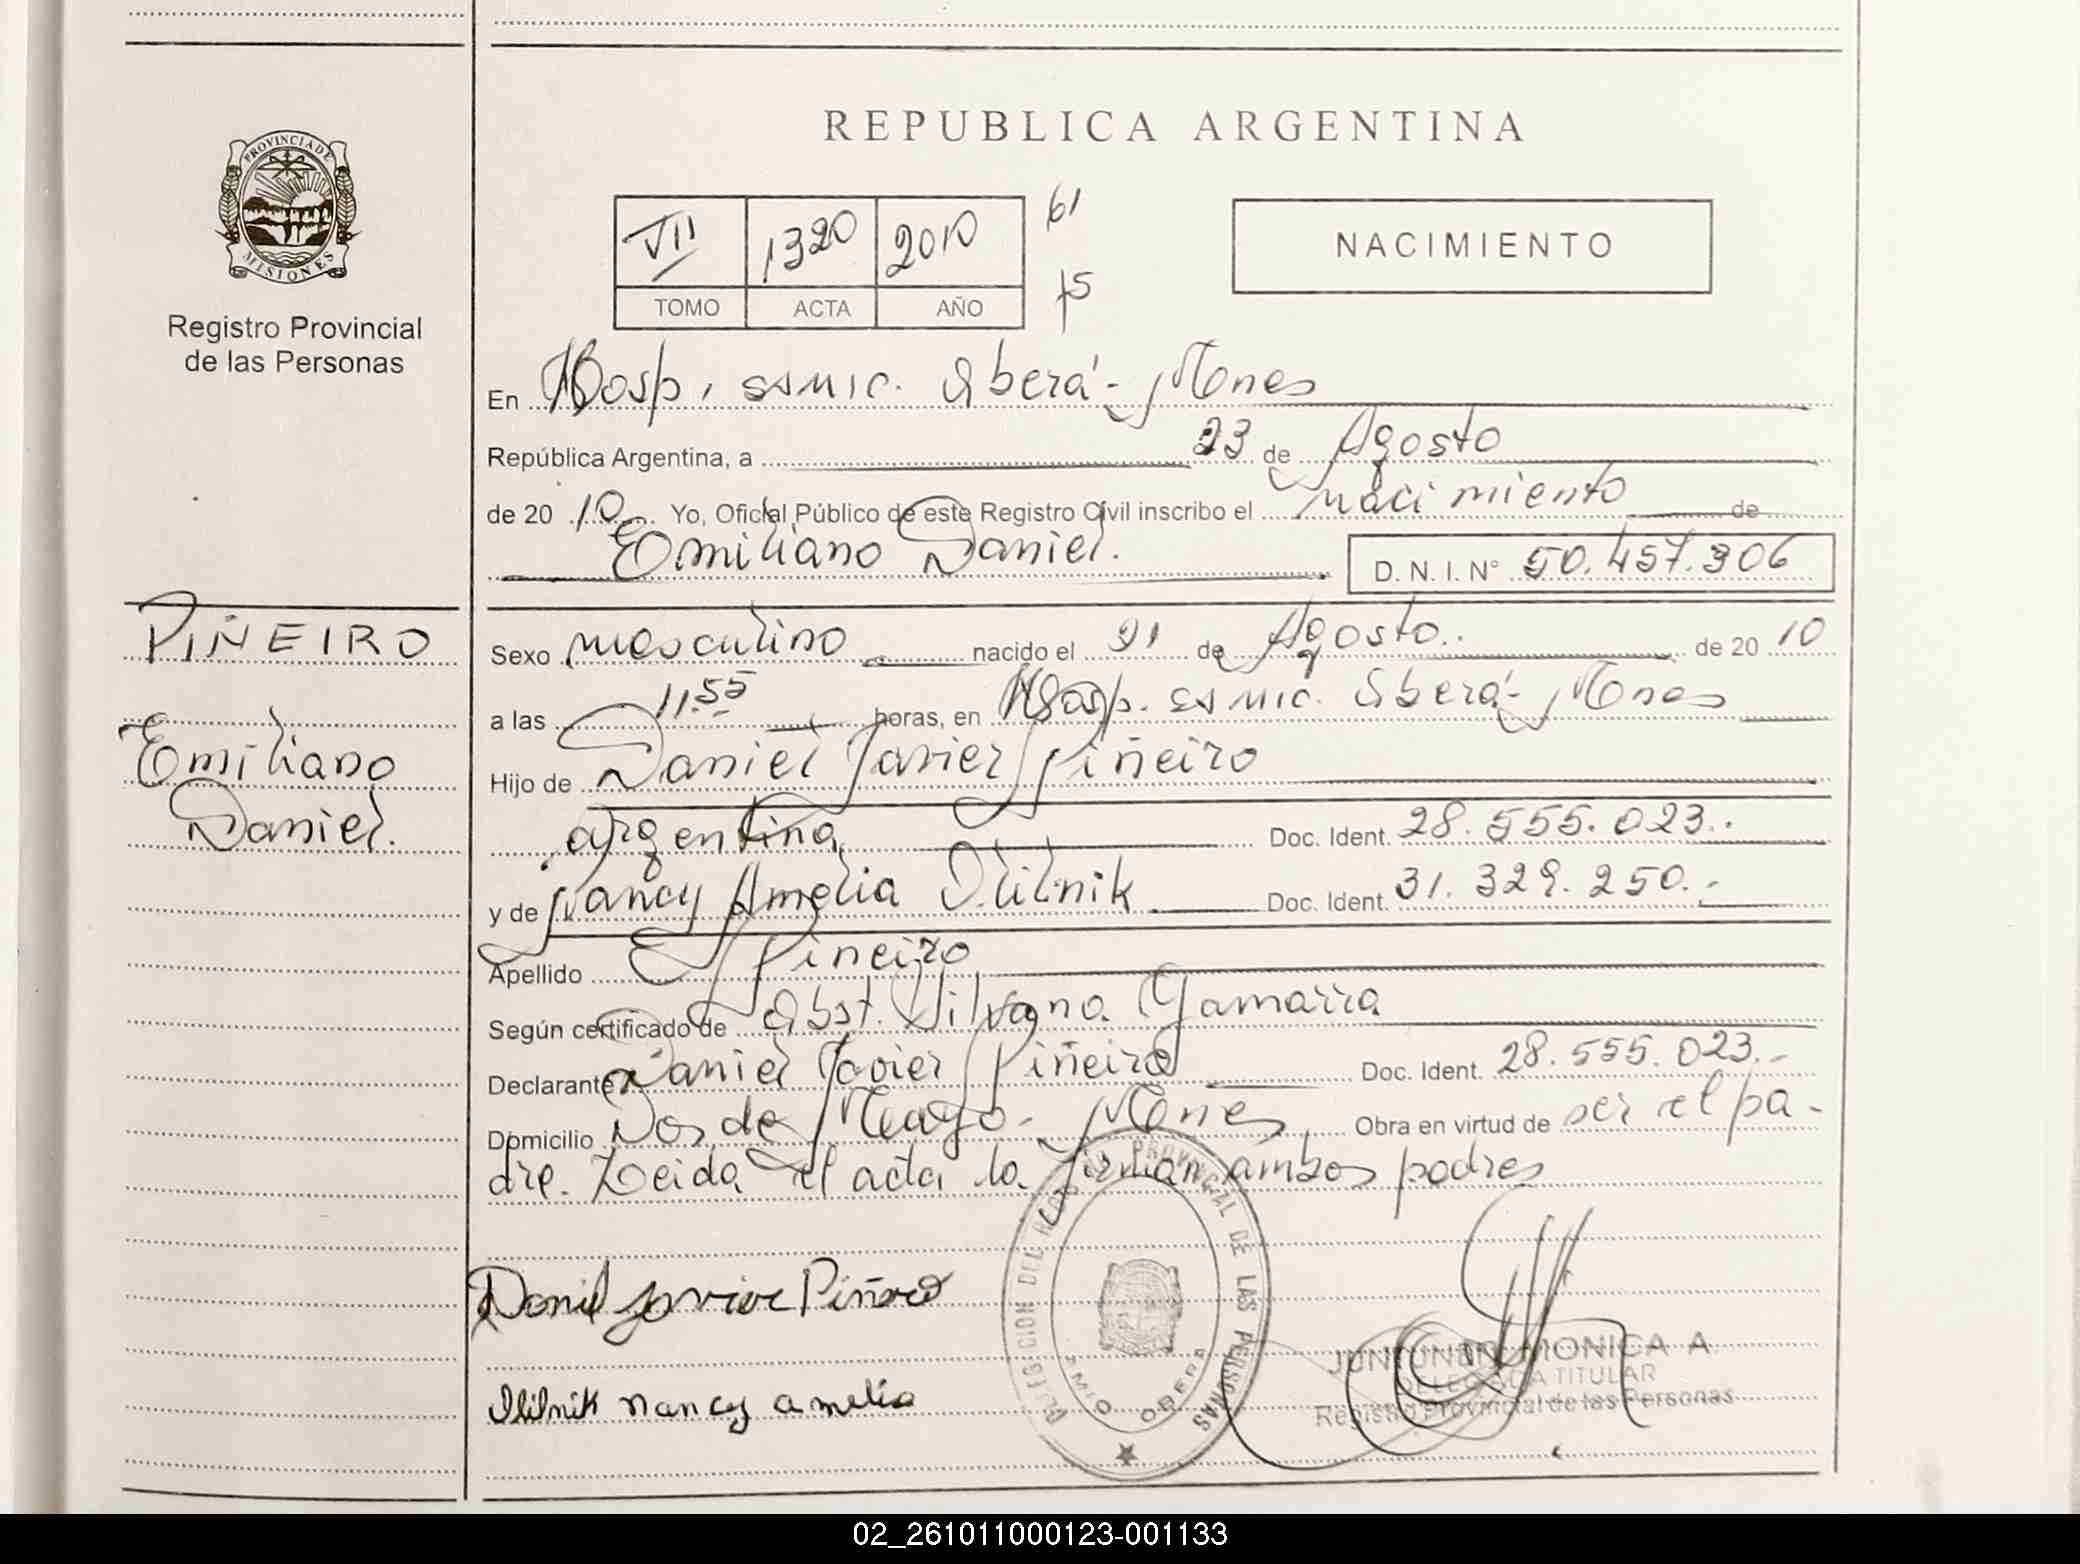 REPUBLICA ARGENTINA
PROVINCIA DE
MISIONES
Registro Provincial
de las Personas
VII 1320 2010
TOMO ACTA AÑO
61
75
NACIMIENTO
En Hosp. ssmic. Oberá - Mones
República Argentina, a 23 de Agosto
de 20 10 Yo, Oficial Público de este Registro Civil inscribo el nacimiento de
Emiliano Daniel.
D. N. I. N° 50.457.306
PIÑEIRO
Emiliano
Daniel.
Sexo masculino nacido el 21 de Agosto.. de 20 10
a las 11.55 horas, en Hosp. ssmic. Oberá - Mones
Hijo de Daniel Javier Piñeiro
argentina Doc. Ident. 28.555.023..
y de Nancy Amelia Olilnik Doc. Ident. 31.329.250.-
Apellido Piñeiro
Según certificado de Obst. Silvana Gamarra
Declarante Daniel Javier Piñeiro Doc. Ident. 28.555.023.-
Domicilio Dos de Mayo - Mones Obra en virtud de ser el pa-
dre. Leida el acta la firman ambos padres
Daniel Javier Piñeiro
Olilnik nancy amelia
PROVINCIAL DE LAS PERSONAS
OBERA
MONICA A
DELEGADA TITULAR
Registro Provincial de las Personas
02_261011000123-001133